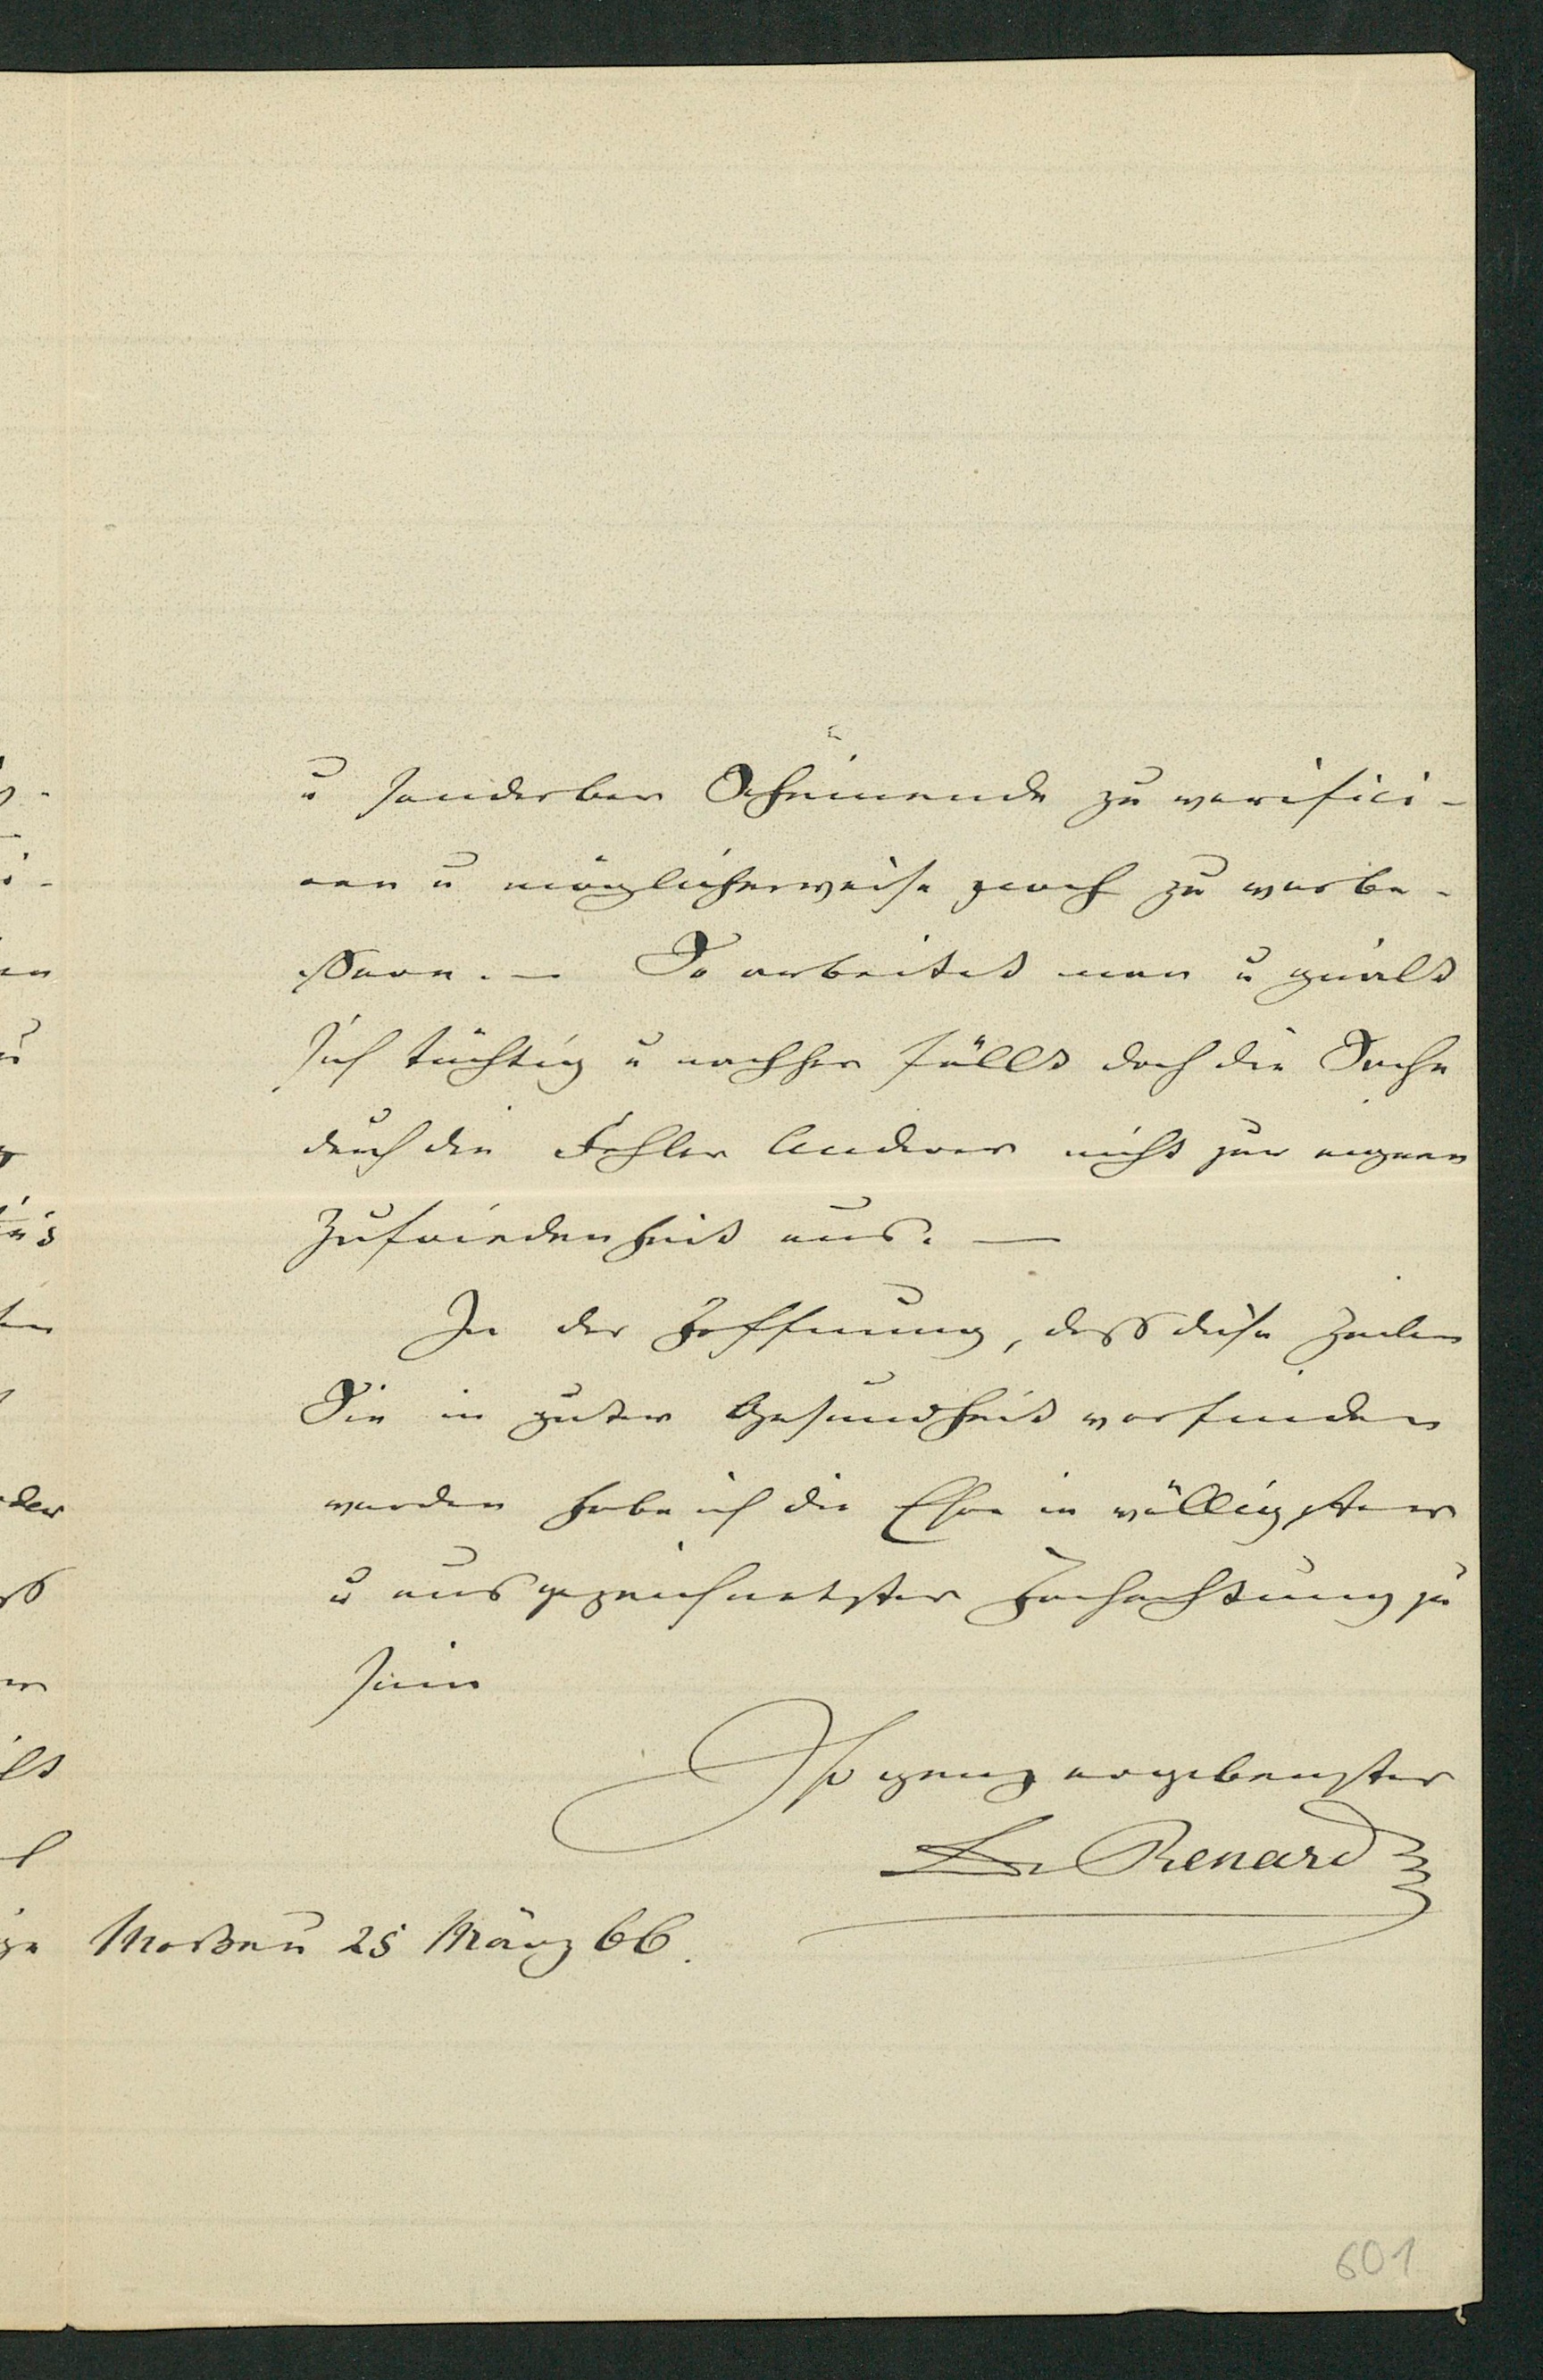 u sonderbar Scheinende zu verifici-
ren u möglicherweise zu verbe-
ssern. — So arbeitet man u quält
sich tüchtig u nachher fällt doch die Sache
durch die Fehler Anderer nicht zur eignen
Zufriedenheit aus. —
In der Hoffnung, dass diese Zeilen
Sie in guter Gesundheit vorfinden
werden habe ich die Ehre in völligster
u ausgezeichnetster Hochachtung zu
sein
Ihr ganz ergebenster
Dr Renard
Moskau 25 März 66.
601